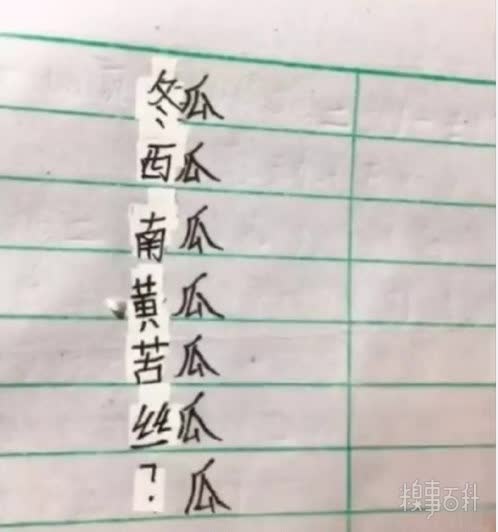 冬瓜
西瓜
南瓜
黄瓜
苦瓜
丝瓜
?瓜
糗事百科